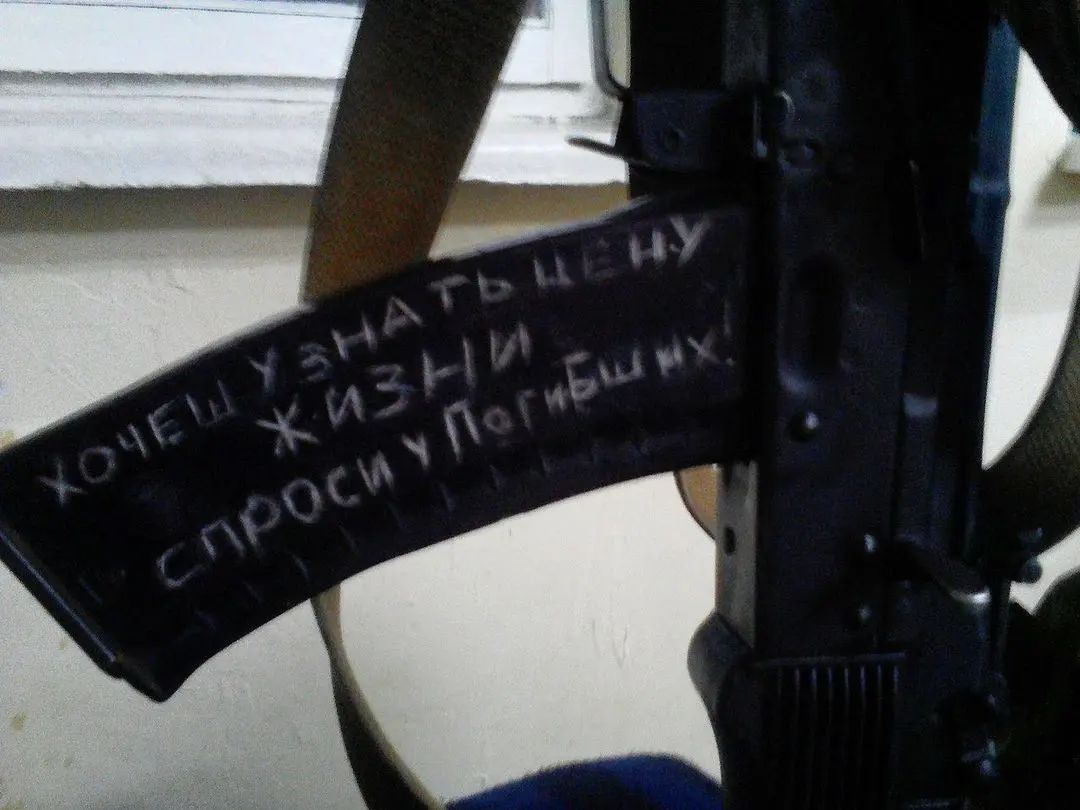 ХОЧЕШ УЗНАТЬ ЦЕНУ
ЖИЗНИ
СПРОСИ У ПОГИБШИХ!